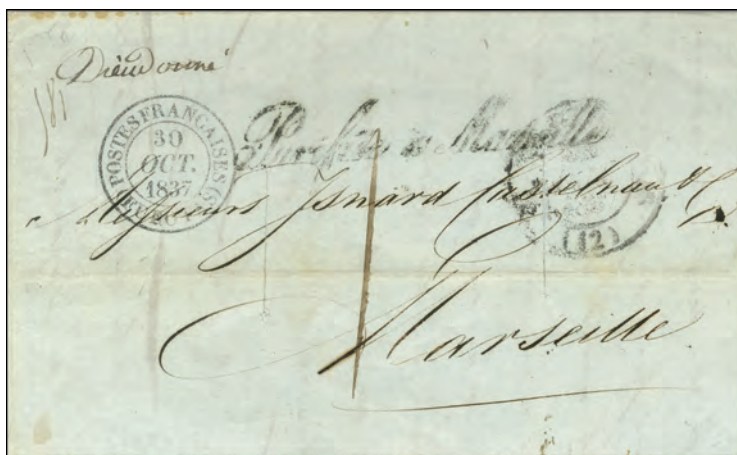 Dieudonné
POSTES FRANCAISES
30
OCT.
1837
Purifié à Marseille
Messieurs Isnard Castelnau & C
(12)
Marseille
1